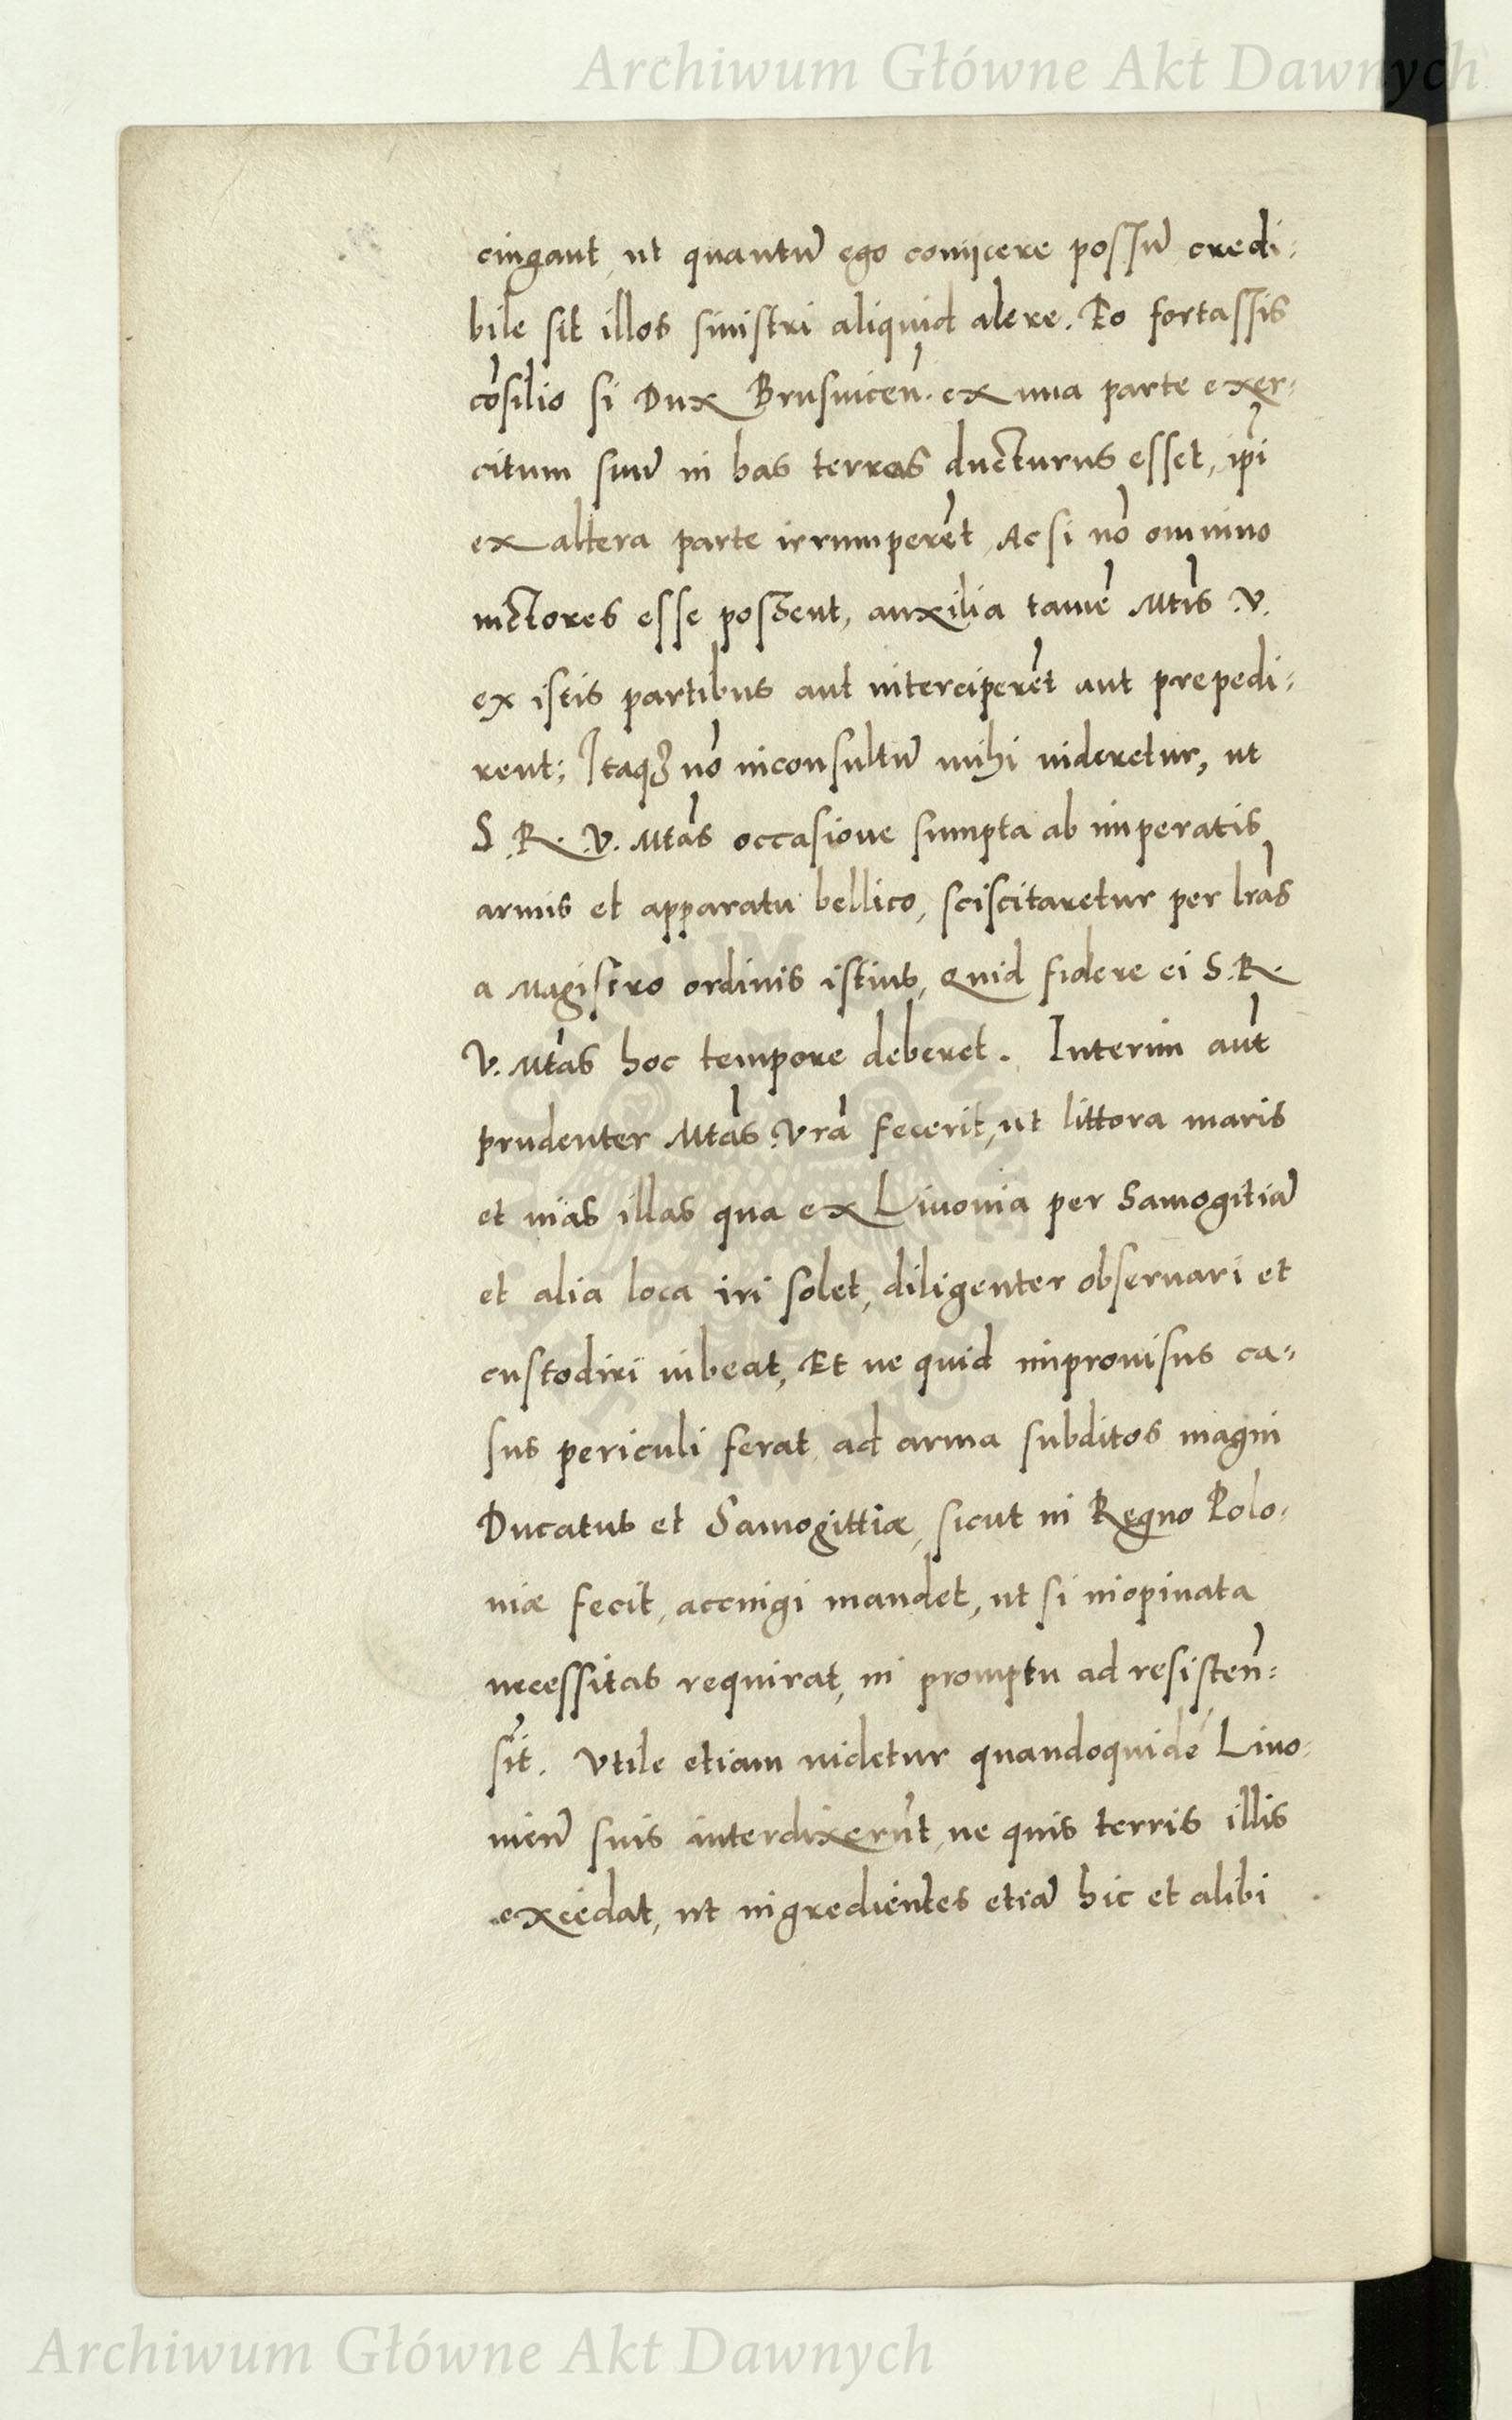 Archiwum Główne Akt Dawnych
cingant, ut quantũ ego conijcere possũ credi:
bile sit illos sinistri aliquid alere. Eo fortassis
cõsilio si Dux Brusuiceñ. ex una parte exer:
citum suũ in has terras ducturus esset, ip̃i
ex altera parte irrumperẽt, Ac si nõ omnino
uictores esse possent, auxilia tamẽ Mtis̃ V.
ex istis partibus aut interciperẽt aut prepedi:
rent; Itaq3 nõ inconsultũ mihi uideretur, ut
S. R. V. Mtãs occasione sumpta ab imperatis
armis et apparatu bellico, sciscitaretur per lrãs
a Magistro ordinis istius, Quid fidere ei S. R.
V. Mtãs hoc tempore deberet. Interim aũt
prudenter Mtãs Vrã fecerit, ut littora maris
et uias illas qua ex Liuonia per Samogitiã
et alia loca iri solet, diligenter obseruari et
custodiri iubeat, Et ne quid improuisus ca:
sus periculi ferat, ad arma subditos magni
Ducatus et Samogittiæ, sicut in Regno Polo:
niæ fecit, accingi mandet, ut si inopinata
necessitas requirat, in promptu ad resisteñ:
sit. Vtile etiam uidetur quandoquidẽ Liuo:
nieñ suis interdixerũt, ne quis terris illis
excedat, ut ingredientes etiã hic et alibi
Archiwum Główne Akt Dawnych